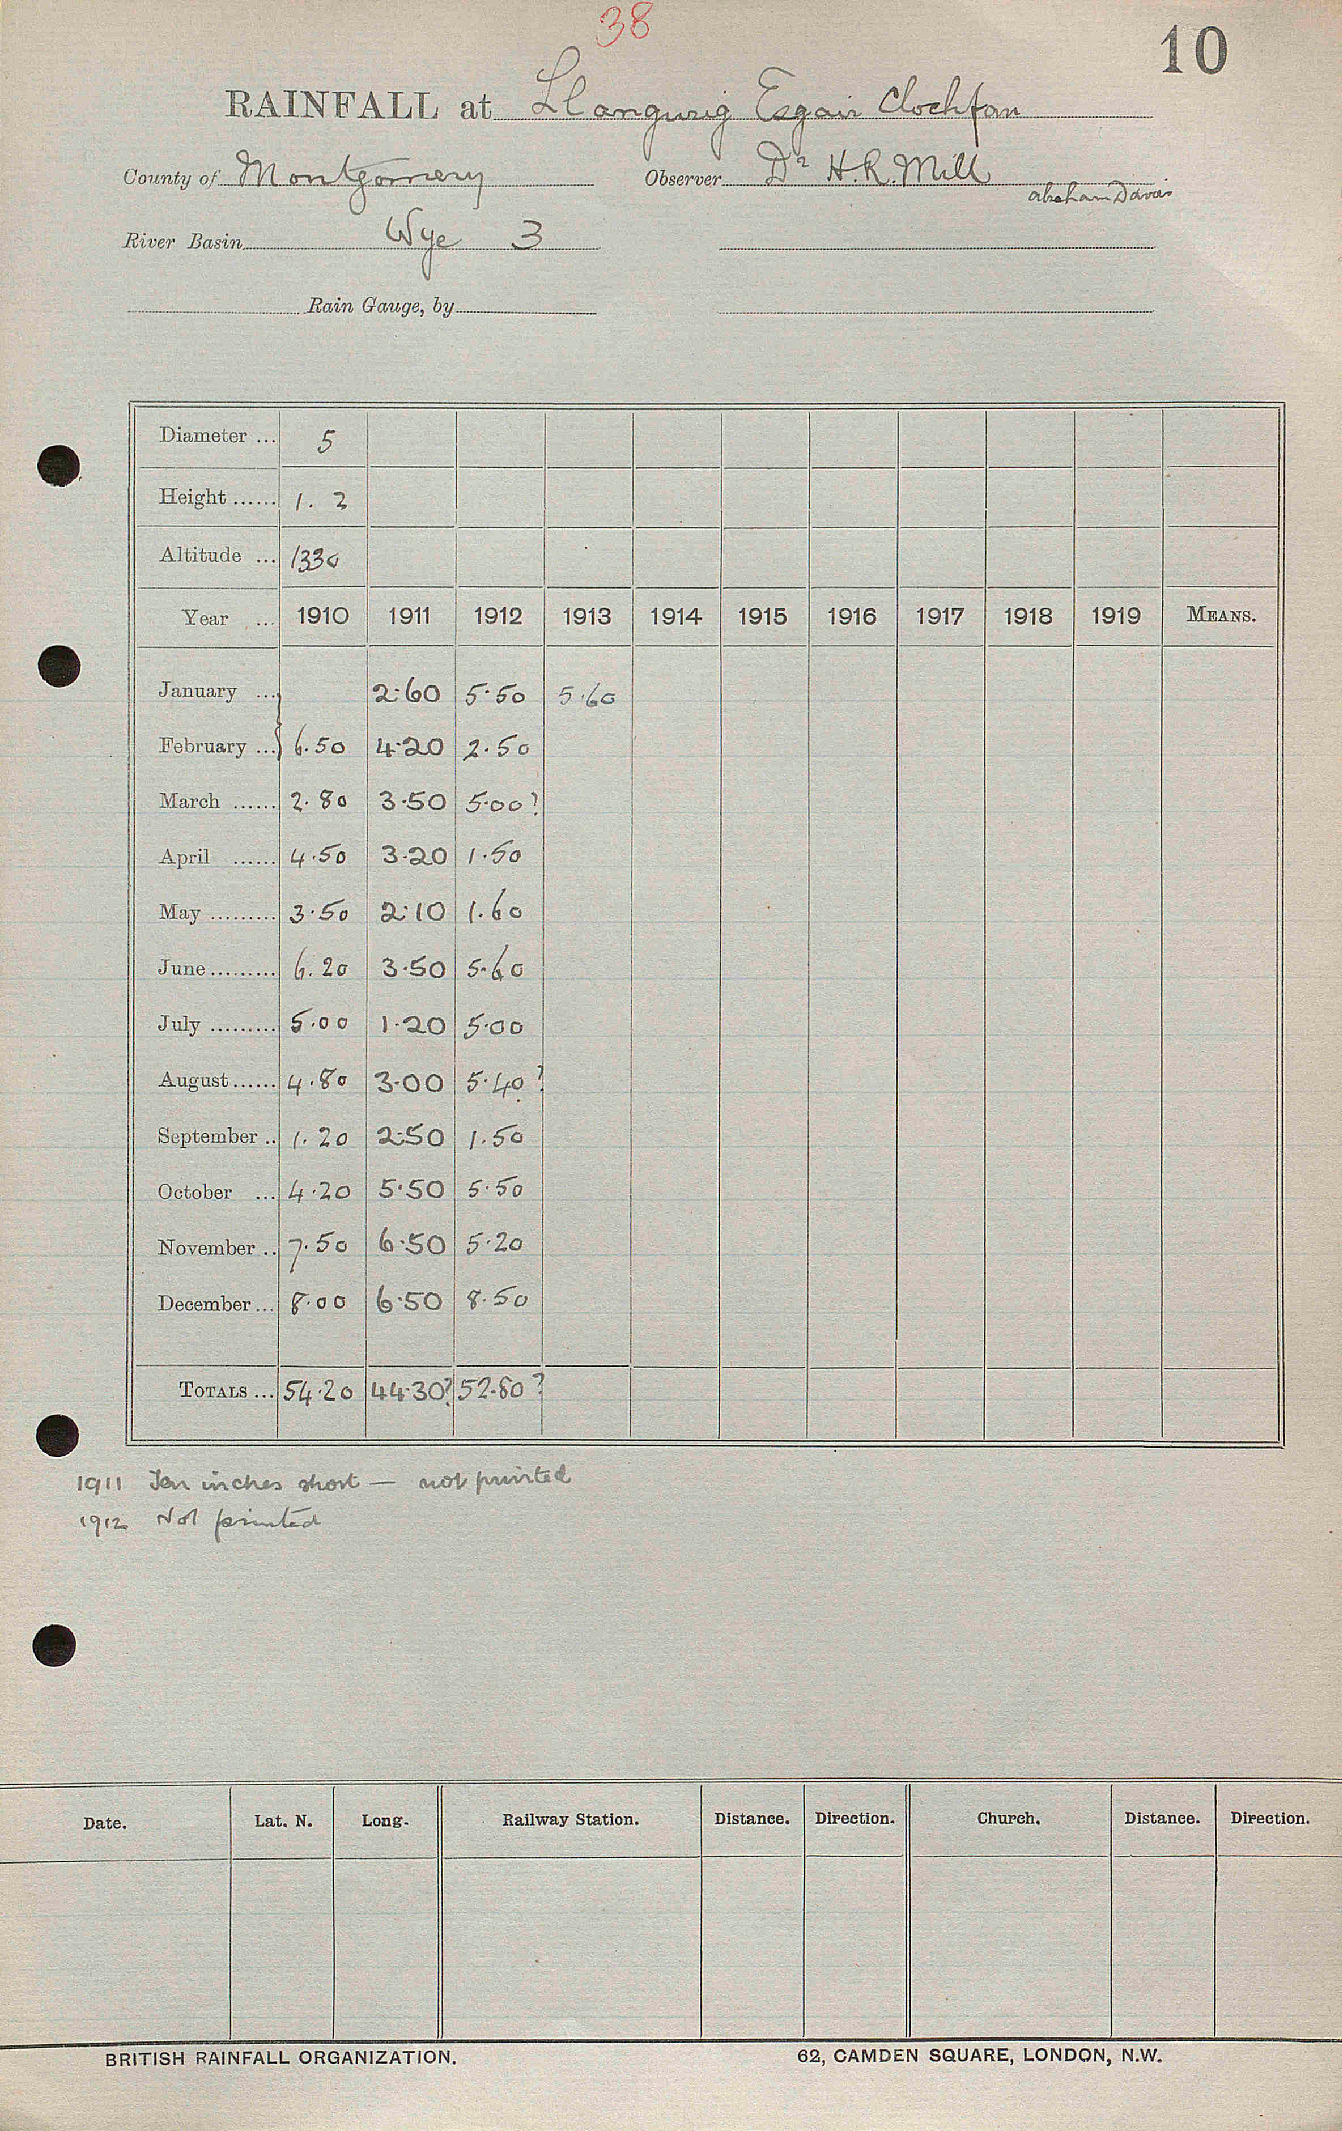 38
10
RAINFALL at Llangurig Esgair Clochfan
County of Montgomery Observer Dr H.R. Mill
Abraham Davies
River Basin Wye 3
Rain Gauge, by
Diameter ... 5
Height ...... 1. 2
Altitude ... 1330
Year ... 1910 1911 1912 1913 1914 1915 1916 1917 1918 1919 MEANS.
January ... 2.60 5.50 5.60
February ... } 6.50 4.20 2.50
March ...... 2.80 3.50 5.00?
April ...... 4.50 3.20 1.50
May ......... 3.50 2.10 1.60
June ......... 6.20 3.50 5.60
July ......... 5.00 1.20 5.00
August ...... 4.80 3.00 5.40?
September .. 1.20 2.50 1.50
October ... 4.20 5.50 5.50
November .. 7.50 6.50 5.20
December ... 8.00 6.50 8.50
TOTALS ... 54.20 44.30? 52.80?
1911 Ten inches short — not printed
1912 Not printed
Date. Lat. N. Long. Railway Station. Distance. Direction. Church. Distance. Direction.
BRITISH RAINFALL ORGANIZATION. 62, CAMDEN SQUARE, LONDON, N.W.